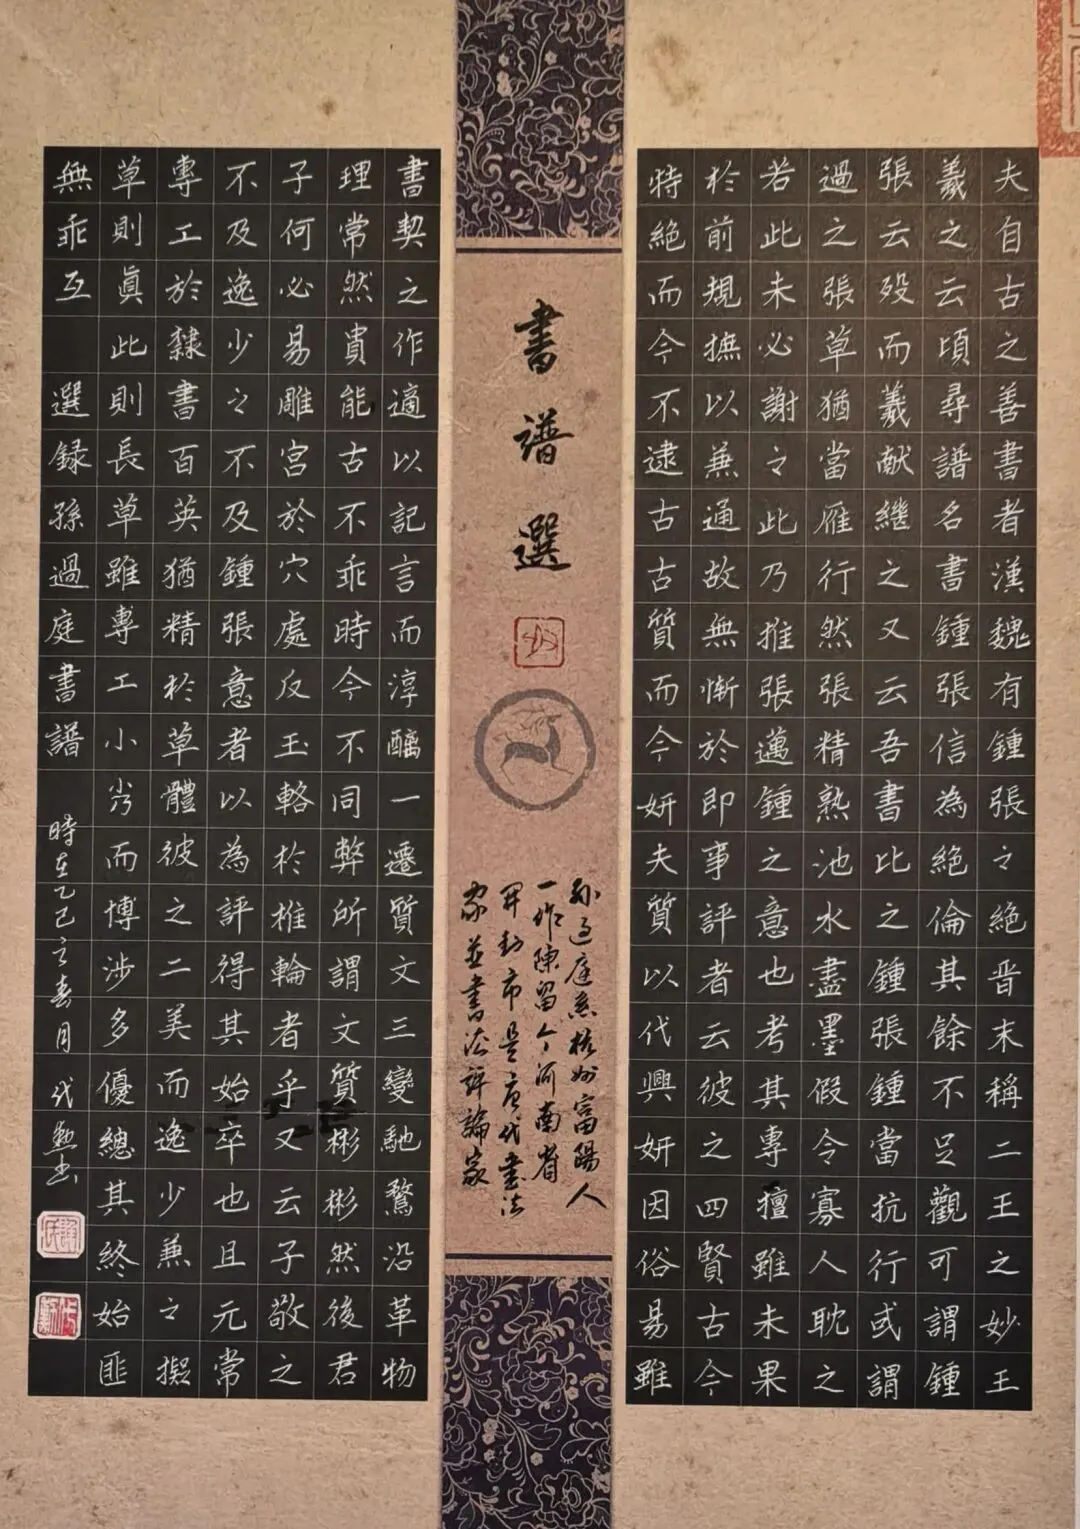 夫自古之善書者漢魏有鍾張之絕晋末稱二王之妙王
羲之云頃尋譜名書鍾張信為絕倫其餘不足觀可謂鍾
張云歿而羲献繼之又云吾書比之鍾張鍾當抗行或謂
過之張草猶當雁行然張精熟池水盡墨假令寡人耽之
若此未必謝之此乃推張邁鍾之意也考其專擅雖未果
於前規摭以兼通故無慚於即事評者云彼之四賢古今
特絕而今不逮古古質而今妍夫質以代興妍因俗易雖
書譜選
孙过庭系杭州富陽人
一作陳留今河南省
开封市是唐代書法
家並書法評論家
書契之作適以記言而淳醨一遷質文三變馳鶩沿革物
理常然貴能古不乖時今不同弊所謂文質彬彬然後君
子何必易雕宮於穴處反玉輅於椎輪者乎又云子敬之
不及逸少之不及鍾張意者以為評得其始卒也且元常
專工於隸書百英猶精於草體彼之二美而逸少兼之擬
草則眞此則長草雖專工小劣而博涉多優總其終始匪
無乖互 選録孫過庭書譜 時在乙巳之春月 代勳書